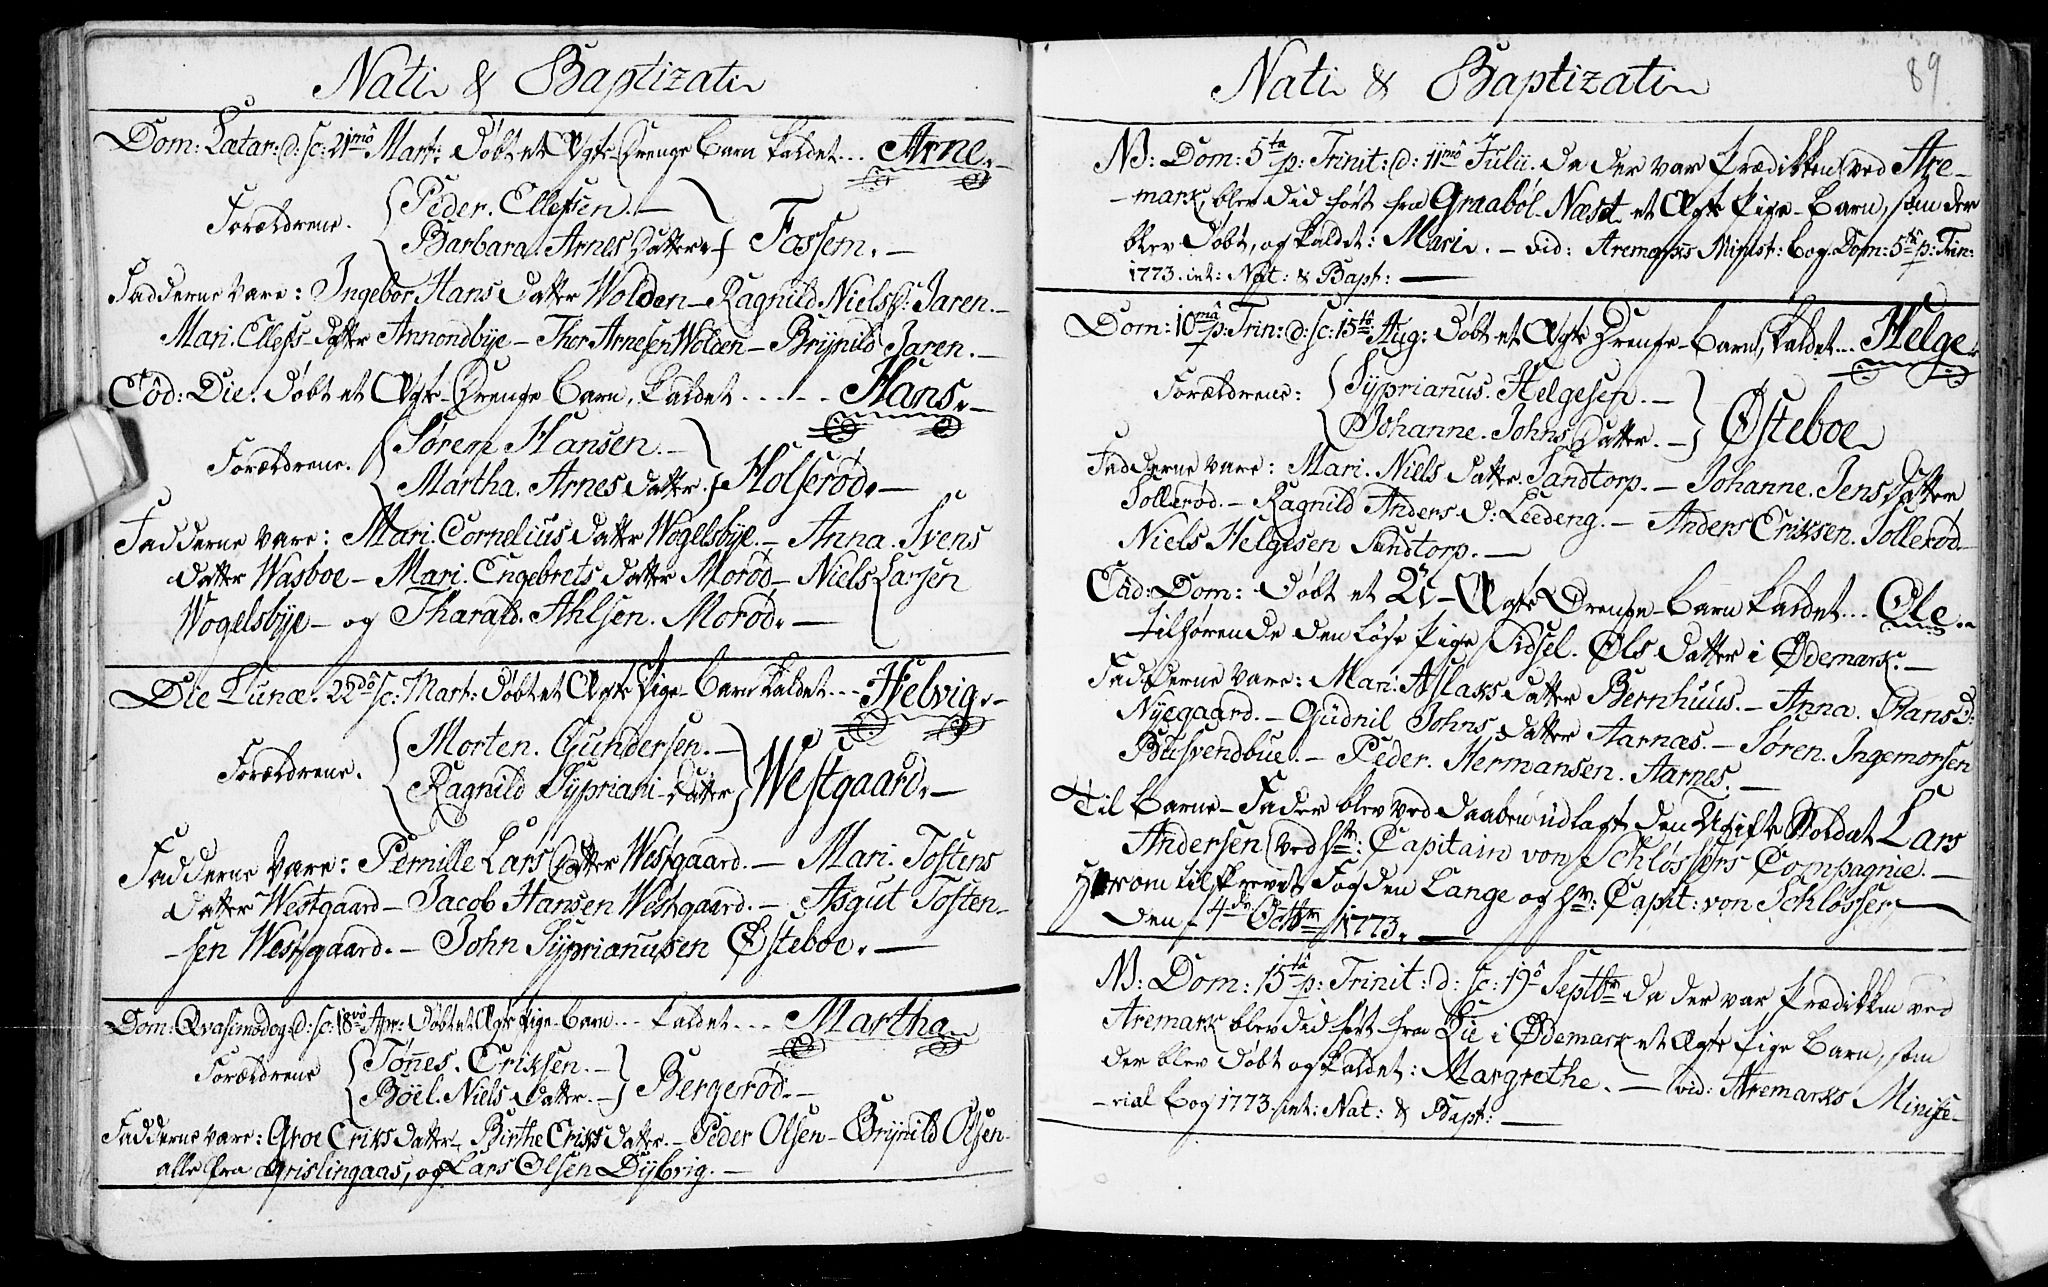 Nati & Baptizati
Dom: Lætar: d: sc: 21mô Mart: døbt et Ægte Drenge Barn kaldet... Arne.
Forældrene. Peder. Ellefsen.
Barbara. Arnes Datter. Fossem.
Fadderne vare: Ingebor Hans Datter Wolden - Ragnild Niels Jaren.
Mari. Ellefs Datter Annondbye - Thor Arnesen Wolden - Brÿnild Jaren.
Eôd: Die. døbt et Ægte Drenge Barn, kaldet..... Hans.
Forældrene. Søren Hansen.
Martha. Arnes Datter. Holserød.
Fadderne vare: Mari. Cornelius Datter Wogelsbye. - Anna. Svens
datter Wasboe - Mari. Engebrets Datter Morød - Niels Larsen
Wogelsbye - og Tharald. Ahlsen. Morød.
Die Lunæ. 22dô sc: Mart: døbt et Ægte Pige Barn kaldet... Helvig.
Forældrene. Morten. Gundersen.
Ragnild Sÿpriani Datter Westgaard.
Fadderne vare: Pernille Lars Datter Westgaard. - Mari. Tostens
datter Westgaard - Jacob Hansen Westgaard. - Asgut Tosten-
-sen Westgaard. - John Sÿprianusen Østeboe.
Dom: Qvasimodog: d: sc: 18vô Apr: døbt et Ægte Pige Barn... kaldet... Martha
Forældrene Tønes. Eriksen.
Böel. Niels Datter. Bergerød.
Fadderne vare: Groe Eriks datter - Birthe Eriks datter. - Peder Olsen - Brÿnild Olsen
alle fra Grislingaas, og Lars Olsen Dÿbvig.
89
Nati & Baptizati
NB: Dom: 5ta p: Trinit: d: 11mô Julii. da der var Prædikken ved Are-
-mark, blev did ført fra Graabøl-Næst et Ægte Pige-Barn, som der
blev døbt, og kaldet: Mari. - vid: Aremarks Minist: bog. Dom: 5tâ p: Trin:
1773. int: Nat: & Bapt:
Dom: 10mâ p: Trin: d: sc: 15tô Aug: døbt et Ægte Drenge-Barn, kaldet... Helge.
Forældrene: Sÿprianus. Helgesen.
Johanne. Johns Datter. Østeboe
Fadderne vare: Mari. Niels datter. Sandtorp. - Johanne. Jens datter
Sollerød. - Ragnild Anders D: Leedeng. - Anders Eriksen. Sollerød
Niels Helgesen Sandtorp.
Eâd: Dom: døbt et Uægte Drenge-Barn kaldet... Ole.
tilhørende den løse Pige Sidsel. Ols datter i Ødemark.
Fadderne vare: Mari. Aslaks datter Bernhuus. - Anna. Hans D:
Nyegaard. - Güdnil Johns datter Aarnæs. - Søren. Ingemorsen
Busvendbue. - Peder. Hermansen. Aarnes.
Til Barne-Fader blev ved daaben udlagt den Ugifte Soldat Lars
Andersen ved Hr: Capitain von Schløssers Compagnie.
Herom tilskrevet Fogden Lange og Hr: Capit: von Schlosser
den 4de Octbr 1773.
NB: Dom: 15tâ p: Trinit: d: sc: 19ô Septbr da der var Prædikken ved
Aremark blev did ført fra Lie i Ødemark et Ægte Pige Barn, som
der blev døbt og kaldet: Margrethe. - vid: Aremarks Ministe-
-rial Bog 1773. int: Nat: & Bapt: